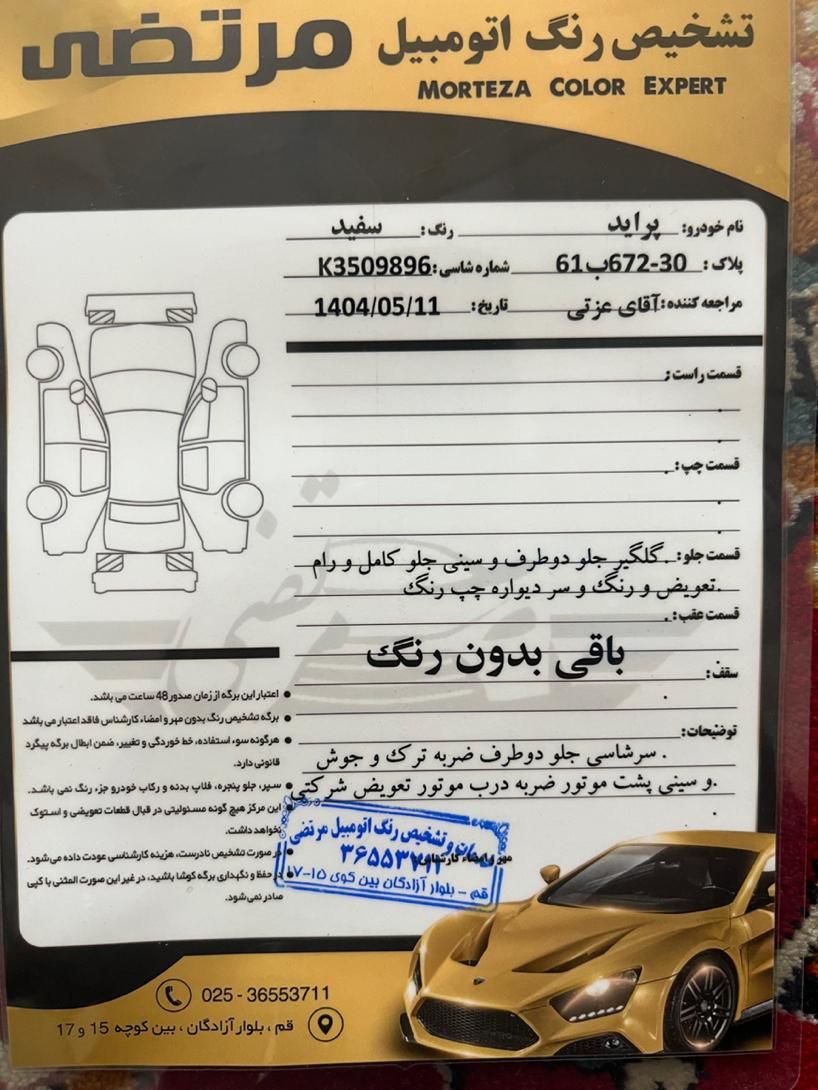 تشخیص رنگ اتومبیل مرتضی
MORTEZA COLOR EXPERT
نام خودرو: پراید رنگ: سفید
پلاک: 30-672ب61 شماره شاسی: K3509896
مراجعه کننده: آقای عزتی تاریخ: 1404/05/11
قسمت راست:
قسمت چپ:
قسمت جلو: گلگیر جلو دوطرف و سینی جلو کامل و رام
تعویض و رنگ و سر دیواره چپ رنگ
قسمت عقب:
باقی بدون رنگ
سقف:
توضیحات:
سرشاسی جلو دوطرف ضربه ترک و جوش
و سینی پشت موتور ضربه درب موتور تعویض شرکتی
اعتبار این برگه از زمان صدور 48 ساعت می باشد.
برگه تشخیص رنگ بدون مهر و امضاء کارشناس فاقد اعتبار می باشد
هرگونه سوء استفاده، خط خوردگی و تغییر، ضمن ابطال برگه پیگرد
قانونی دارد.
سپر، جلو پنجره، فلاپ بدنه و رکاب خودرو جزء رنگ نمی باشد.
این مرکز هیچ گونه مسئولیتی در قبال قطعات تعویضی و استوک
نخواهد داشت.
در صورت تشخیص نادرست، هزینه کارشناسی عودت داده می شود.
در حفظ و نگهداری برگه کوشا باشید، در غیر این صورت المثنی یا کپی
صادر نمی شود.
مهر و امضاء کارشناس:
و تشخیص رنگ اتومبیل مرتضی
قم - بلوار آزادگان بین کوی ۱۵-۱۷
025 - 36553711
قم ، بلوار آزادگان ، بین کوچه 15 و 17